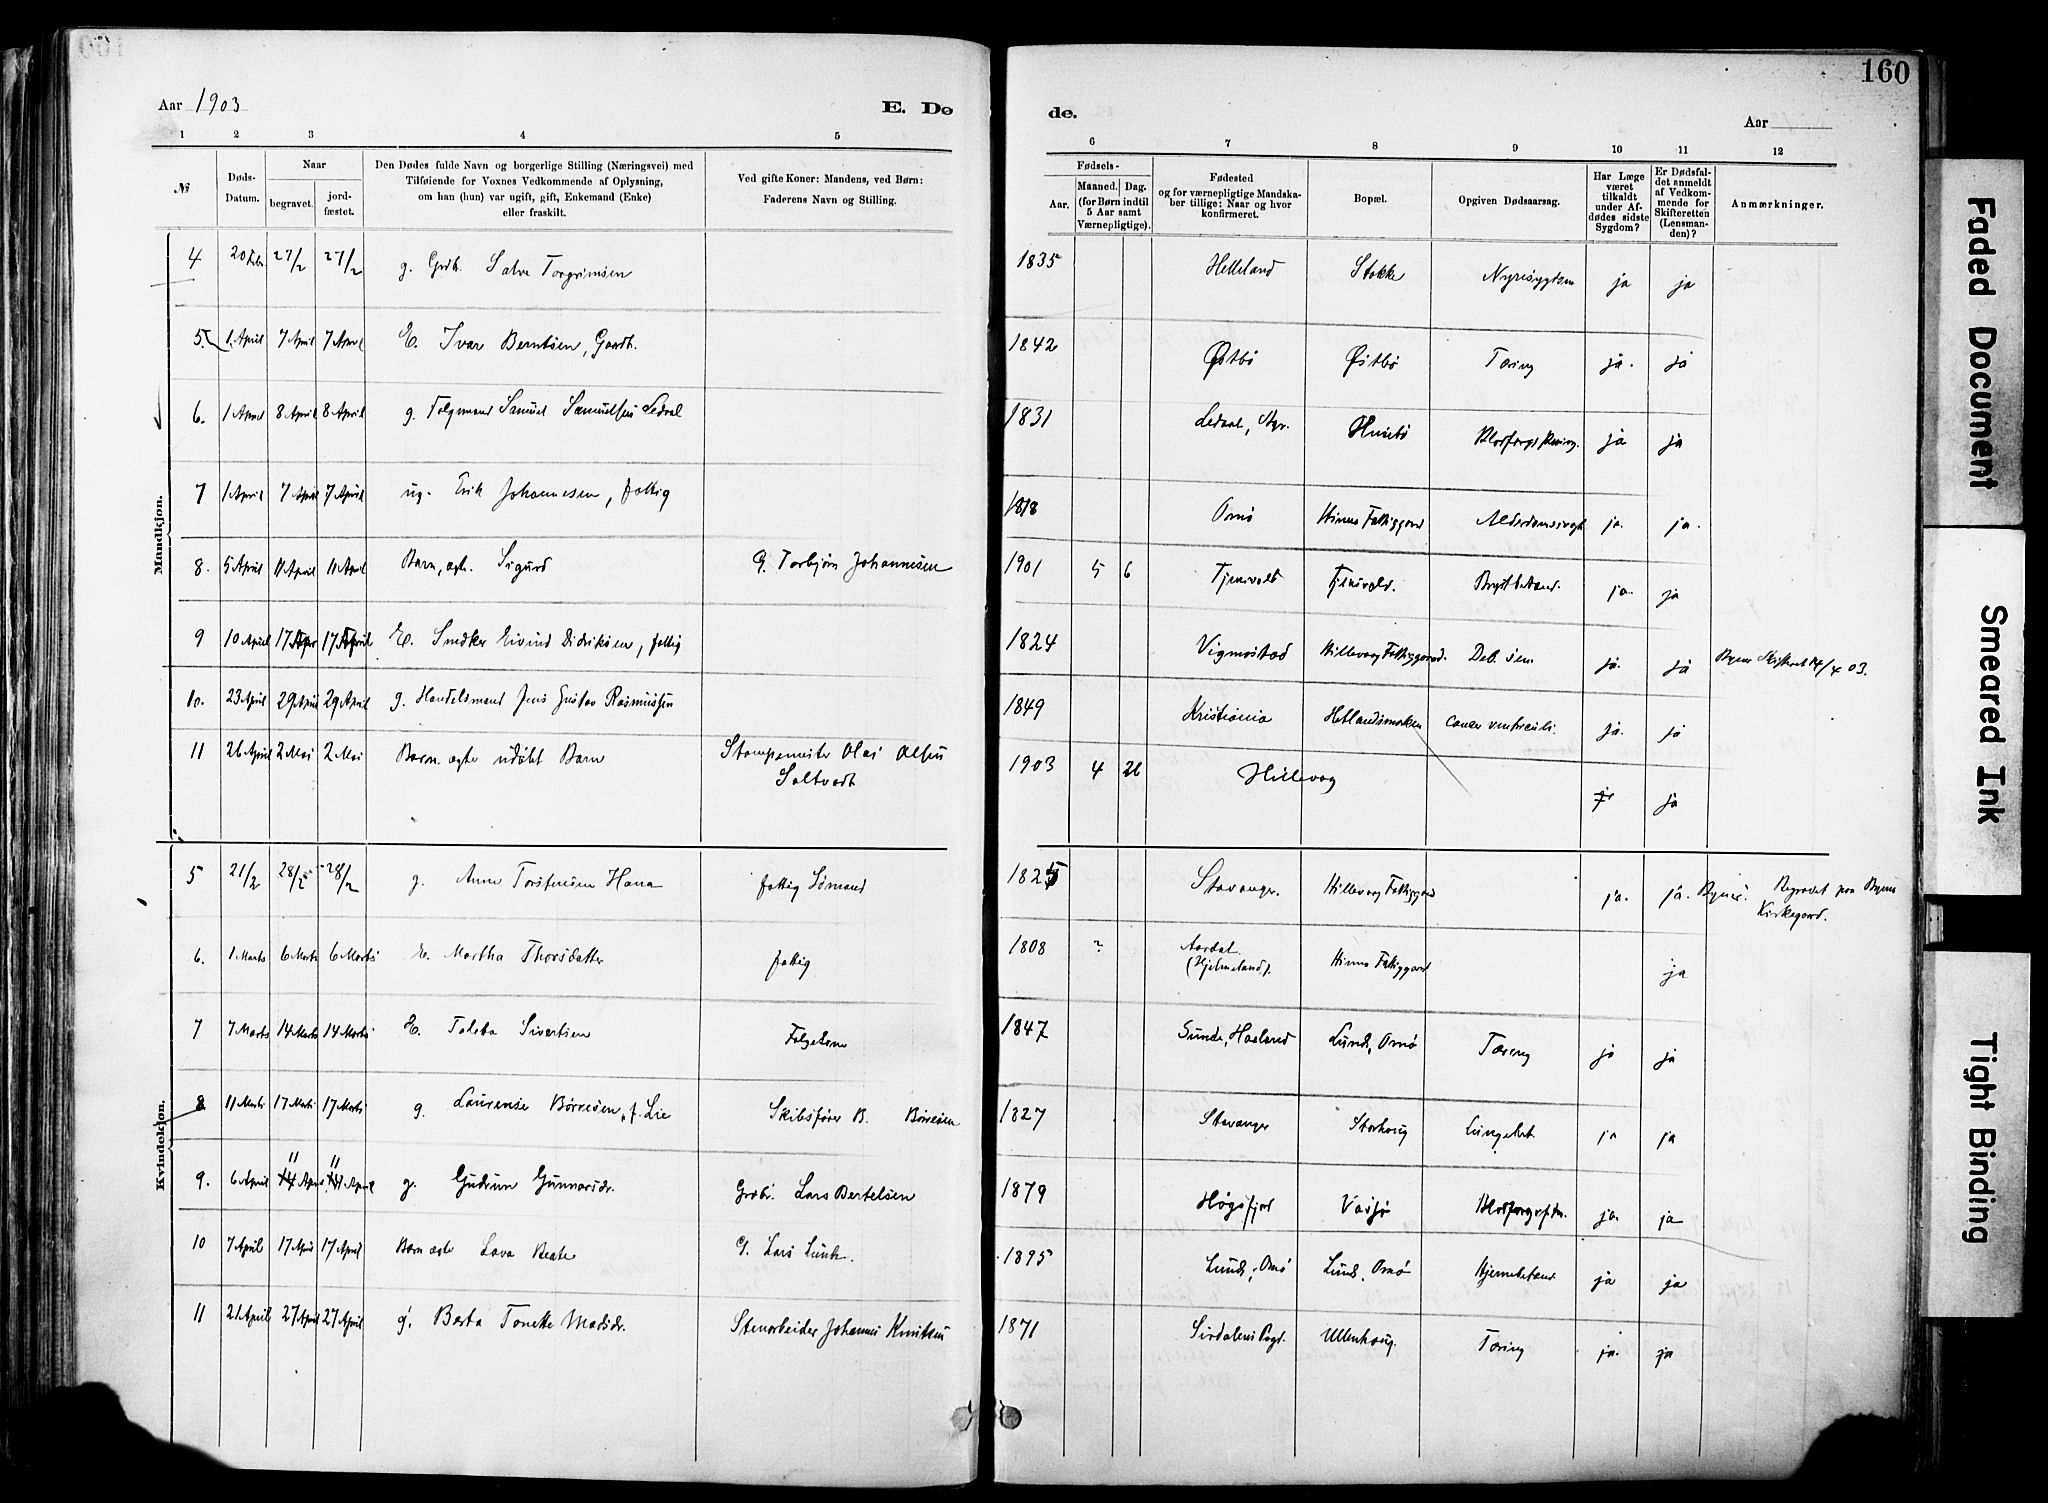 160
Aar 1903
E. Dø
de.
Aar
1 2 3 4 5 6 7 8 9 10 11 12
№
Døds-
Datum.
Naar
begravet.
jord-
fæstet.
Den Dødes fulde Navn og borgerlige Stilling (Næringsvei) med
Tilføiende for Voxnes Vedkommende af Oplysning,
om han (hun) var ugift, gift, Enkemand (Enke)
eller fraskilt.
Ved gifte Koner: Mandens, ved Børn:
Faderens Navn og Stilling.
Fødsels-
Aar.
Maaned. Dag.
(for Børn indtil
5 Aar samt
Værnepligtige).
Fødested
og for værnepligtige Mandska-
ber tillige: Naar og hvor
konfirmeret.
Bopæl.
Opgiven Dødsaarsag.
Har Læge
været
tilkaldt
under Af-
dødes sidste
Sygdom?
Er Dødsfal-
det anmeldt
af Vedkom-
mende for
Skifteretten
(Lensman-
den)?
Anmærkninger.
Mandkjøn.
4 20 Feb. 27/2 27/2 g. Grdb. Salve Torgrimsen 1835 Helleland Stokke Nyresygdom ja ja
5. 1. April 7 April 7 April E. Ivar Berntsen, Gaardb. 1842 Østbø Østbø Tæring ja. ja
6. 1 April 8 April 8 April g. Folgmand Samuel Samuelsen Ledaal 1831 Ledaal, Huisbø ja ja
7 1 April 7 April 7 April ug. Erik Johannesen, fattig 1818 Omø Hinna Fattiggaard Alderdomssvagh ja. ja.
8. 5 April 11 April 11 April Barn, ægte. Sigurd G. Torbjørn Johannesen 1901 5 6 Tjensvold Tjensvold. Brystbetænd. ja. ja
9 10 April 17 Apr 17 April E. Smedker Eivind Didriksen, fattig 1824 Vigmostad Hillevaag Fattiggaard. Deb. sen. ja. ja Byens Skifteret 14/4 03.
10. 23 April 29 April 29 April g. Handelsmand Jens Gustav Rasmussen 1849 Kristiania Hetlandsmarken cancer ventriculi. ja. ja
11 26 April 2 Mai 2 Mai Barn ægte udøbt Barn Stampemester Olai Olsen
Saltvedt 1903 4 26 Hillevaag ja
Kvindekjøn.
5 21/2 28/2 28/2 g. Anne Torstensen Hana fattig Sømand 1825 Stavanger. Hillevaag Fattiggaard ja. ja. Byens. Begravet paa Byens
Kirkegaard.
6. 1 Marts 6 Marts 6 Marts E. Martha Thorsdatter fattig 1808 ? Aardal
(Hjelmeland). Hinna Fattiggaard ja
7 7 Marts 14 Marts 14 Marts E. Tabeta Sivertsen Folgekone 1847 Sunde, Haaland Lunde, Omø Tæring ja ja
8 11 Marts 17 Marts 17 Marts g. Laurense Børresen, f. Lie Skibsfører B. Børresen 1827 Stavanger Storhaug Lungebet ja ja
9. 6 April 11 April 11 April g. Gudrun Gunnarsdr. Grdbr. Lars Bertelsen 1879 Høgsfjord Vasjø ja. ja
10 7 April 17 April 17 April Barn ægte Lava Beate G. Lars Lunde. 1895 Lunde, Omø Lunde, Omø Hjernebetænd ja ja
11 21 April 27 April 27 April g. Berta Tonette Madsdr. Stenarbeider Johannes Knutsen 1871 Sirdalens Pgd. Ullenhaug. Tæring ja. ja
Faded Document
Smeared Ink
Tight Binding